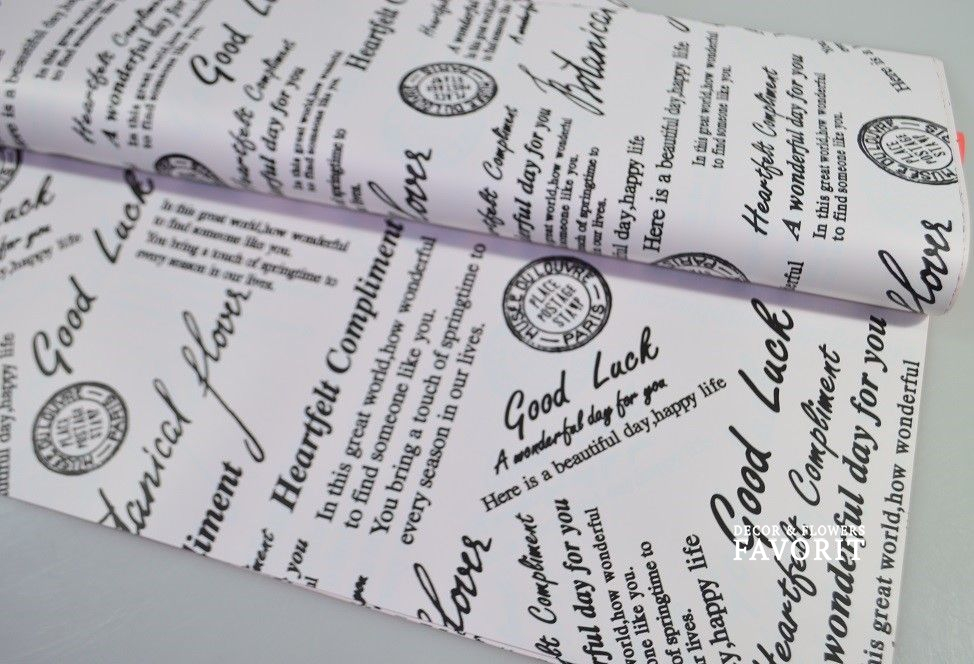 Good
Heartfelt Compliment
A wonderful day for you
In this great world,how wonderful
to find someone like you.
Heartfelt
Botanical
MUSEE DU LOUVRE
Heartfelt Compliment
A wonderful day for you
In this great world,how wonderful
to find someone like you.
Here is a beautiful day,happy life
In this great world,how wonderful
to find someone like you.
Heartfelt Compliment
A wonderful day for you
In this great world,how wonderful
to find someone like you.
MUSEE DU LOUVRE
PARIS
PLACE
POSTAGE
STAMP
flover
Good Luck
In this great world,how wonderful
to find someone like you.
You bring a touch of springtime to
every season in our lives.
MUSEE DU LOUVRE
PARIS
PLACE
POSTAGE
STAMP
Botanical flover
Heartfelt Compliment
In this great world,how wonderful
to find someone like you.
You bring a touch of springtime to
every season in our lives.
MUSEE DU LOUVRE
PARIS
PLACE
POSTAGE
STAMP
Good Luck
A wonderful day for you
Here is a beautiful day,happy life
Good Luck
Heartfelt Compliment
wonderful day for you
this great world,how wonderful
flover
Compliment
day for you
world,how wonderful
one like you.
of springtime to
our lives.
day,happy life
DECOR & FLOWERS
FAVORIT